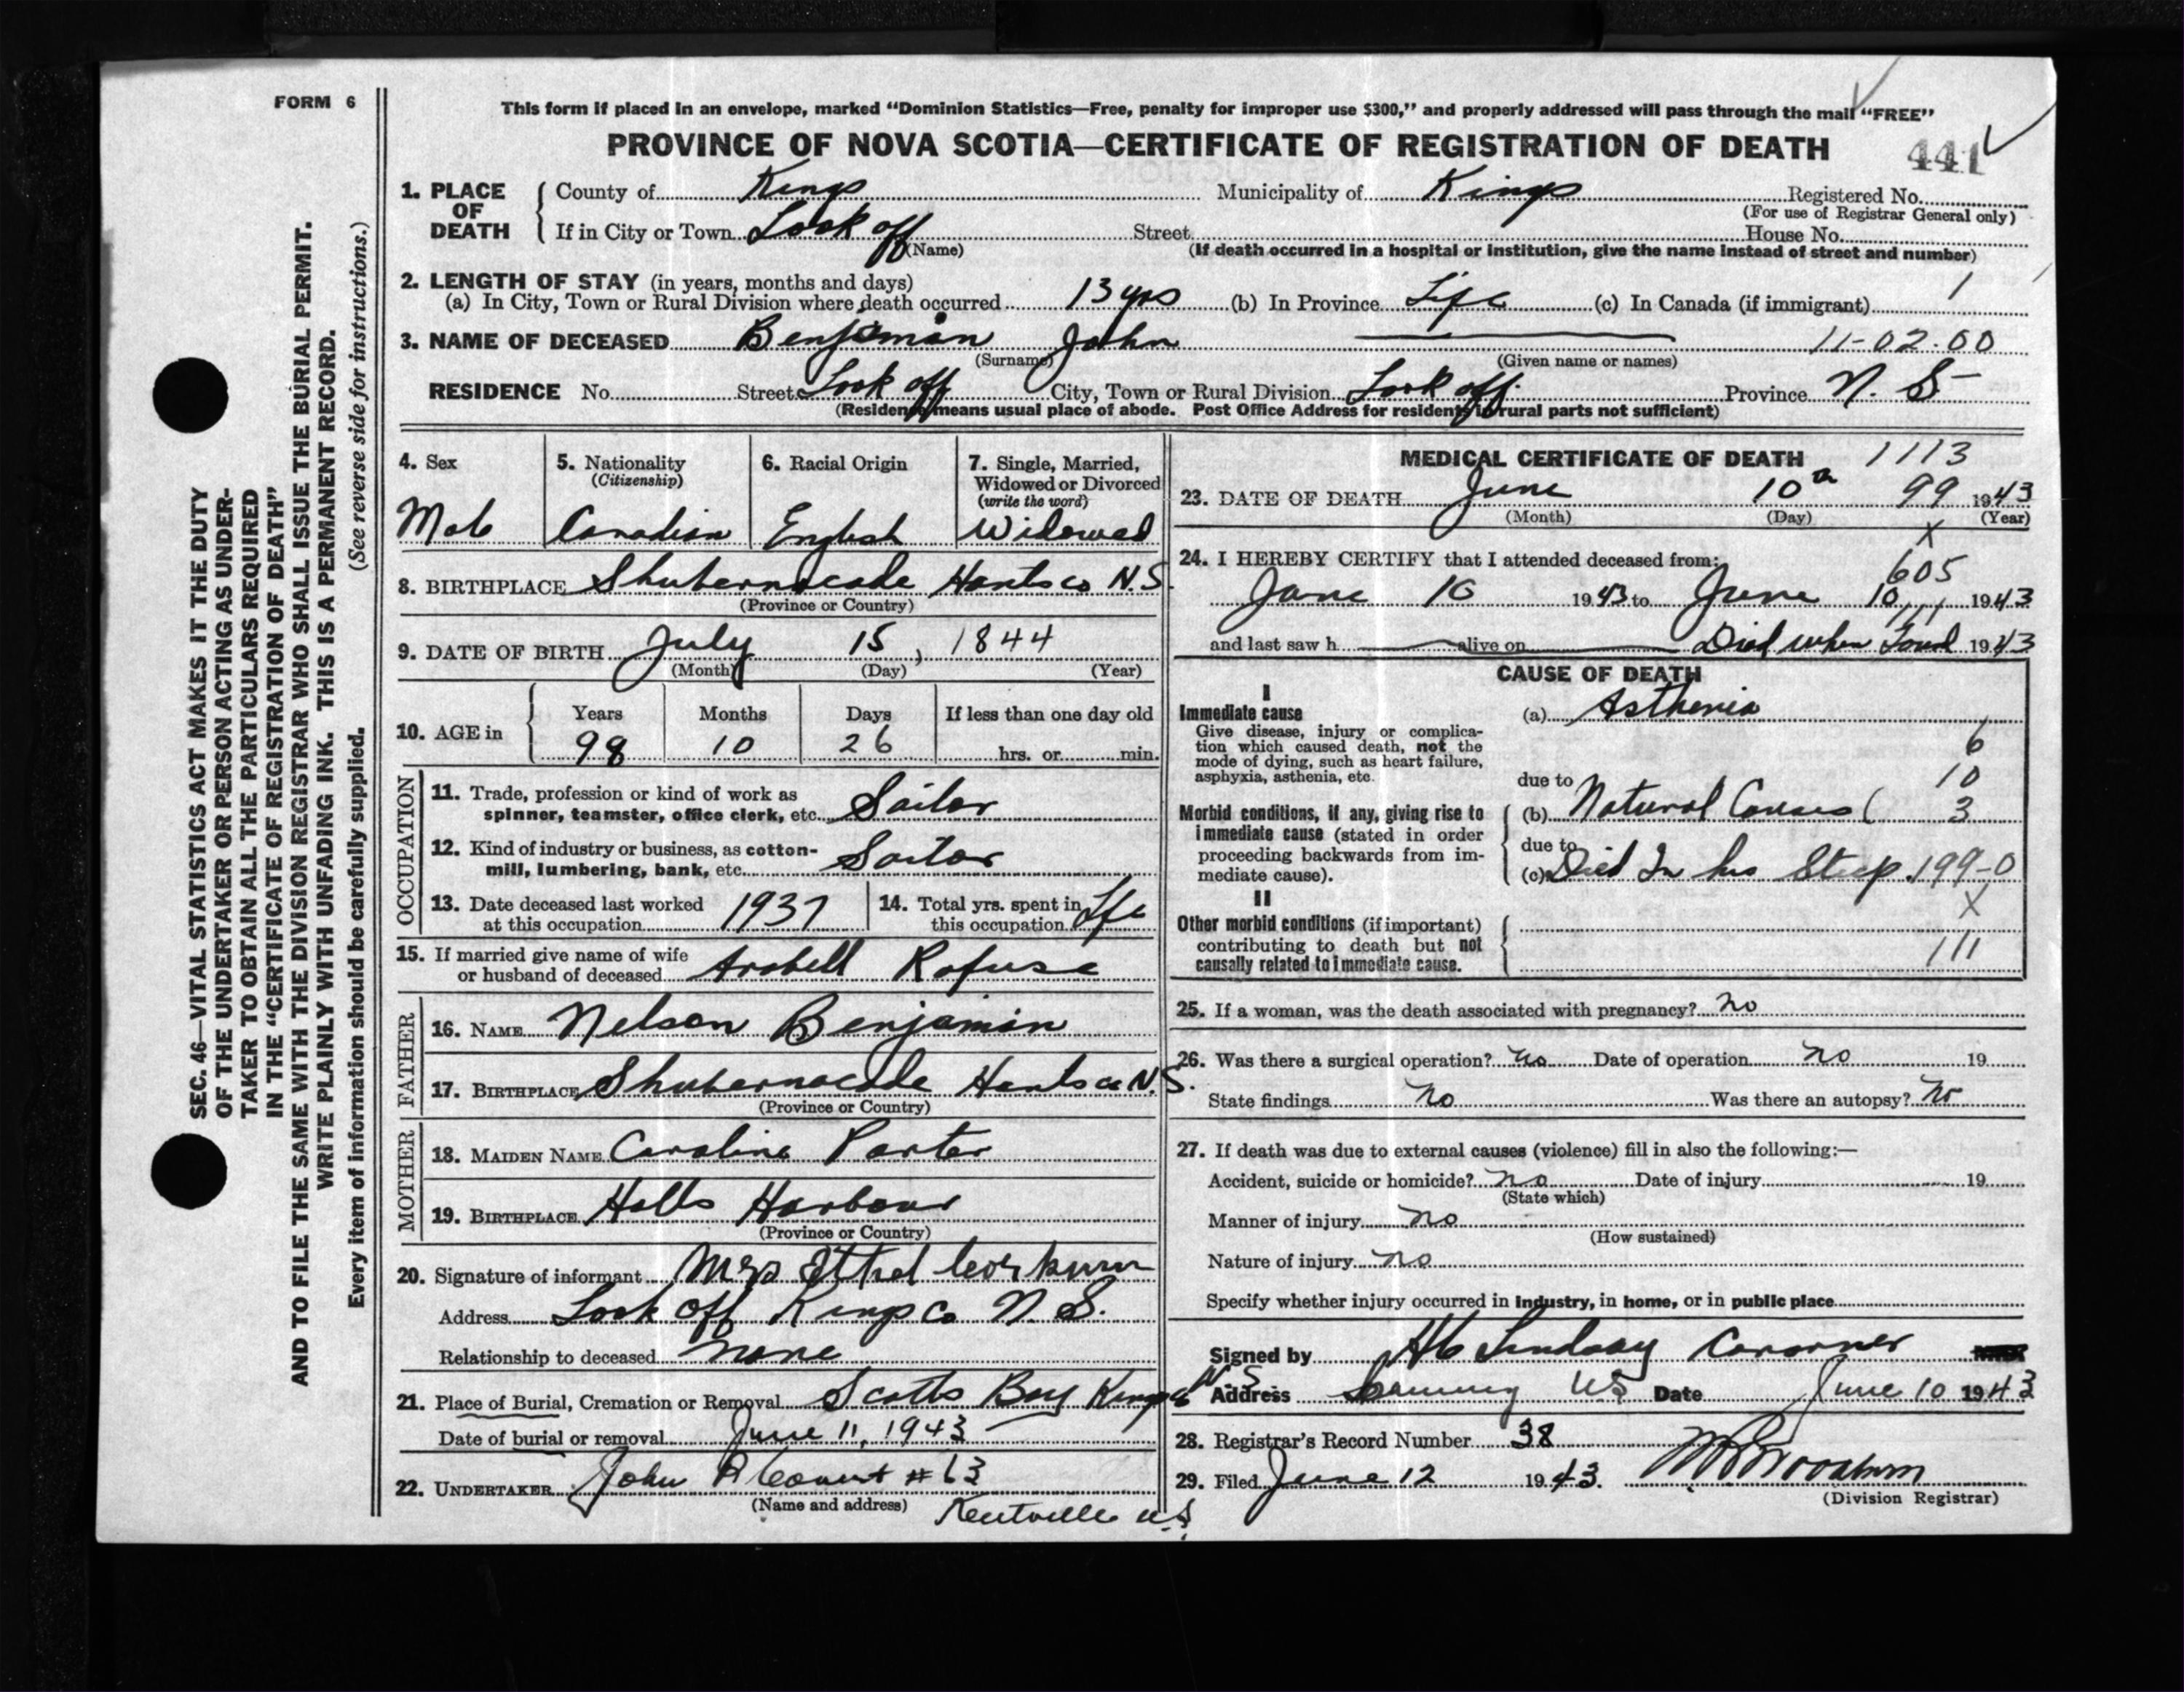 FORM 6
This form if placed in an envelope, marked “Dominion Statistics—Free, penalty for improper use $300,” and properly addressed will pass through the mail “FREE”
PROVINCE OF NOVA SCOTIA—CERTIFICATE OF REGISTRATION OF DEATH 441
1. PLACE OF DEATH County of Kings Municipality of Kings Registered No.
(For use of Registrar General only)
If in City or Town Look off Street House No.
(Name) (If death occurred in a hospital or institution, give the name instead of street and number)
2. LENGTH OF STAY (in years, months and days)
(a) In City, Town or Rural Division where death occurred 13 yrs (b) In Province Life (c) In Canada (if immigrant) 1
3. NAME OF DECEASED Benjamin John 11-02-00
(Surname) (Given name or names)
RESIDENCE No. Street Look off City, Town or Rural Division Look off. Province N. S
(Residence means usual place of abode. Post Office Address for residents in rural parts not sufficient)
SEC. 46—VITAL STATISTICS ACT MAKES IT THE DUTY
OF THE UNDERTAKER OR PERSON ACTING AS UNDER-
TAKER TO OBTAIN ALL THE PARTICULARS REQUIRED
IN THE “CERTIFICATE OF REGISTRATION OF DEATH”
AND TO FILE THE SAME WITH THE DIVISION REGISTRAR WHO SHALL ISSUE THE BURIAL PERMIT.
WRITE PLAINLY WITH UNFADING INK. THIS IS A PERMANENT RECORD.
Every item of information should be carefully supplied. (See reverse side for instructions.)
4. Sex
Male
5. Nationality
(Citizenship)
Canadian
6. Racial Origin
English
7. Single, Married,
Widowed or Divorced
(write the word)
Widowed
8. BIRTHPLACE Shubernacade Hants co N.S.
(Province or Country)
9. DATE OF BIRTH July 15, 1844
(Month) (Day) (Year)
10. AGE in Years Months Days If less than one day old
98 10 26 hrs. or min.
OCCUPATION
11. Trade, profession or kind of work as
spinner, teamster, office clerk, etc. Sailor
12. Kind of industry or business, as cotton-
mill, lumbering, bank, etc. Sailor
13. Date deceased last worked
at this occupation 1937
14. Total yrs. spent in
this occupation Life
15. If married give name of wife
or husband of deceased Arabell Rafuse
FATHER
16. NAME Nelson Benjamin
17. BIRTHPLACE Shubernacade Hants co N.S.
(Province or Country)
MOTHER
18. MAIDEN NAME Caroline Porter
19. BIRTHPLACE Halls Harbour
(Province or Country)
20. Signature of informant Mrs Ethel Corkum
Address Look off Kings Co N. S.
Relationship to deceased None
21. Place of Burial, Cremation or Removal Scotts Bay Kings Co N.S.
Date of burial or removal June 11, 1943
22. UNDERTAKER John #63
(Name and address) Kentville N.S.
MEDICAL CERTIFICATE OF DEATH 1113
23. DATE OF DEATH June 10 a 99 1943
(Month) (Day) (Year)
X
24. I HEREBY CERTIFY that I attended deceased from:
605
June 10 1943 to June 10 1943
111
and last saw h alive on Died when Found 1943
CAUSE OF DEATH
I
Immediate cause (a) Asthenia
Give disease, injury or complica-
tion which caused death, not the
mode of dying, such as heart failure,
asphyxia, asthenia, etc.
6
10
3
due to
Morbid conditions, if any, giving rise to
immediate cause (stated in order
proceeding backwards from im-
mediate cause).
(b) Natural Causes (
due to
(c) Died In his Sleep. 199-0
X
II
Other morbid conditions (if important)
contributing to death but not
causally related to immediate cause.
111
25. If a woman, was the death associated with pregnancy? no
26. Was there a surgical operation? no Date of operation no 19
State findings No Was there an autopsy? No
27. If death was due to external causes (violence) fill in also the following:—
Accident, suicide or homicide? no Date of injury 19
(State which)
Manner of injury no
(How sustained)
Nature of injury no
Specify whether injury occurred in industry, in home, or in public place
Signed by Lindsay Coronner
Address Canning NS Date June 10 1943
28. Registrar's Record Number 38
29. Filed June 12 1943.
(Division Registrar)